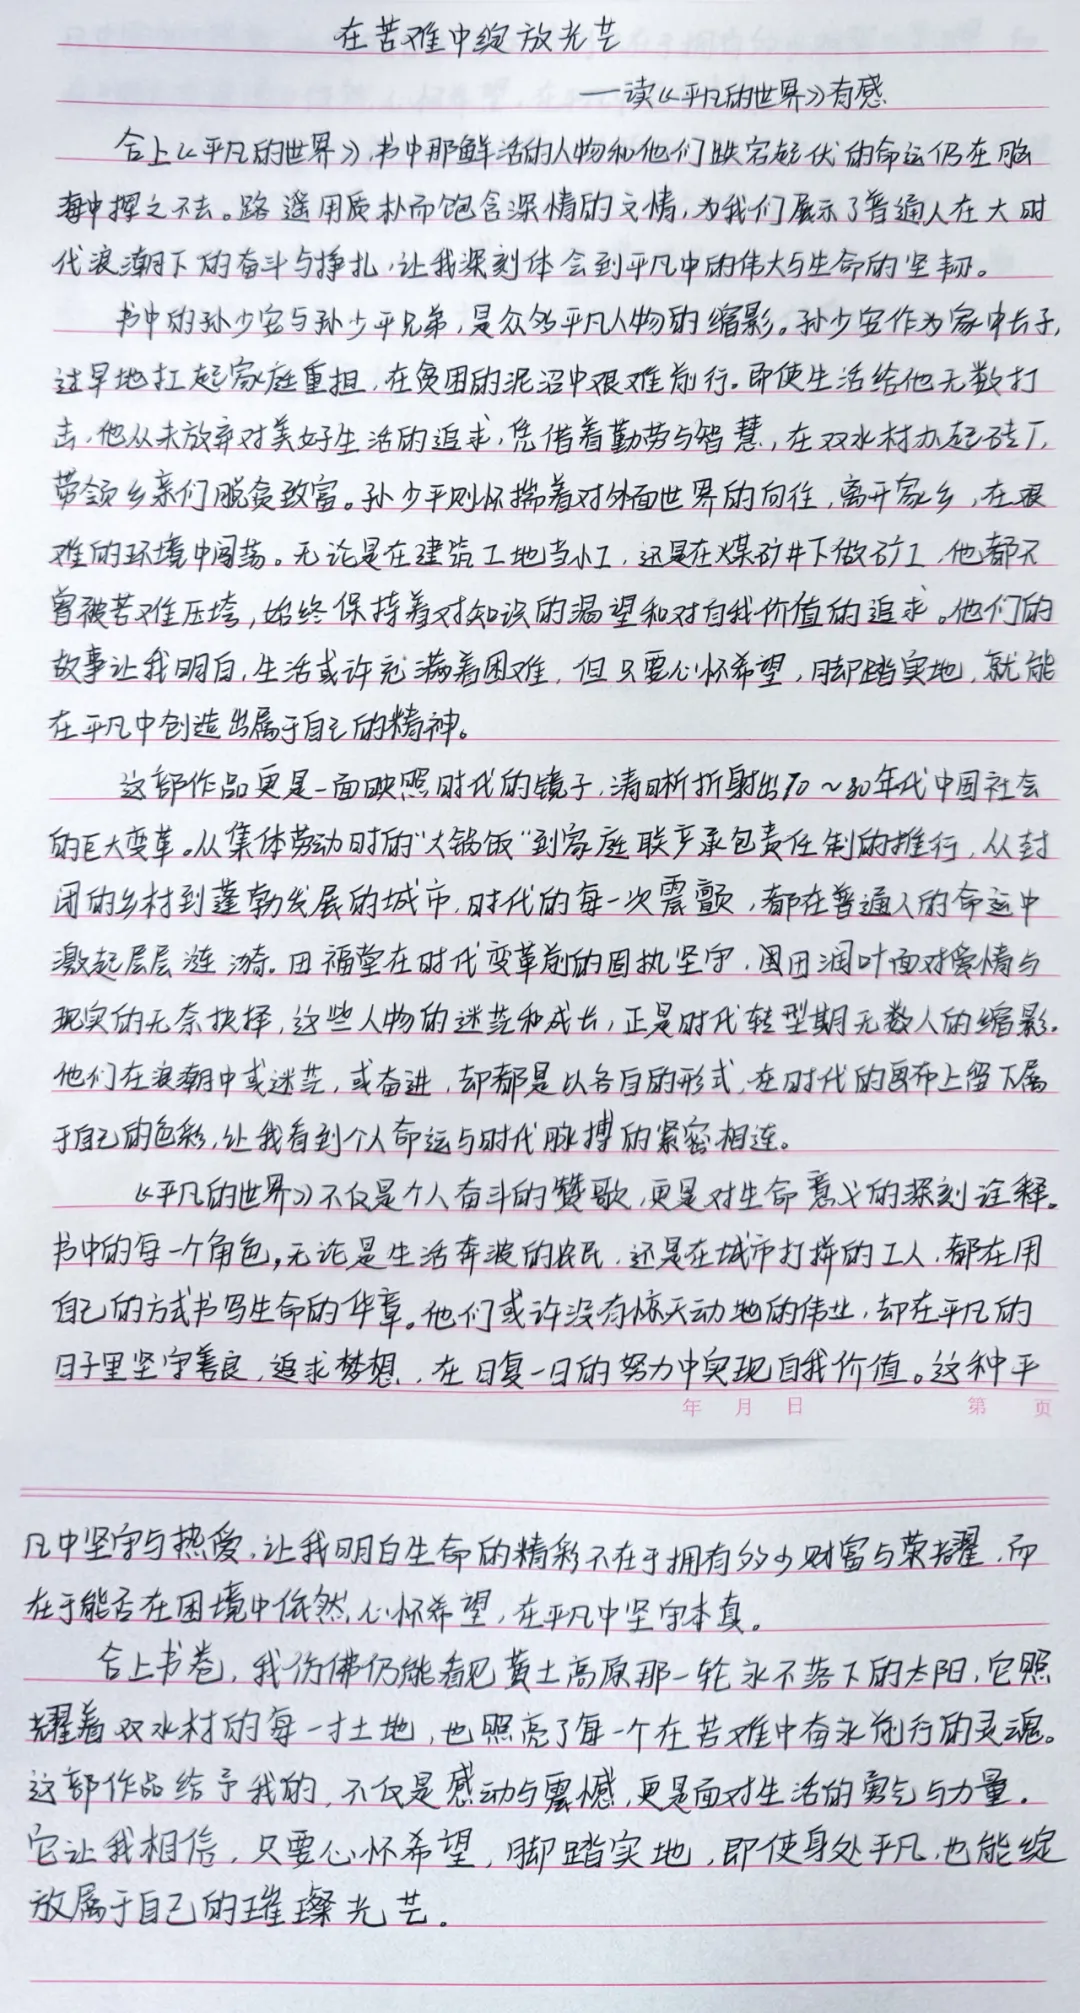 在苦难中绽放光芒
——读《平凡的世界》有感
合上《平凡的世界》,书中那鲜活的人物和他们跌宕起伏的命运仍在脑
海中挥之不去。路遥用质朴而饱含深情的文情,为我们展示了普通人在大时
代浪潮下的奋斗与挣扎,让我深刻体会到平凡中的伟大与生命的坚韧。
书中的孙少安与孙少平兄弟,是众多平凡人物的缩影。孙少安作为家中长子,
过早地扛起家庭重担,在贫困的泥沼中艰难前行。即使生活给他无数打
击,他从未放弃对美好生活的追求,凭借着勤劳与智慧,在双水村办起砖厂,
带领乡亲们脱贫致富。孙少平则怀揣着对外面世界的向往,离开家乡,在艰
难的环境中闯荡。无论是在建筑工地当小工,还是在煤矿井下做矿工,他都不
曾被苦难压垮,始终保持着对知识的渴望和对自我价值的追求。他们的
故事让我明白,生活或许充满着困难,但只要心怀希望,脚踏实地,就能
在平凡中创造出属于自己的精神。
这部作品更是一面映照时代的镜子,清晰折射出70~80年代中国社会
的巨大变革。从集体劳动时的“大锅饭”到家庭联产承包责任制的推行,从封
闭的乡村到蓬勃发展的城市,时代的每一次震颤,都在普通人的命运中
激起层层涟漪。田福堂在时代变革前的固执坚守,田润叶面对爱情与
现实的无奈抉择,这些人物的迷茫和成长,正是时代转型期无数人的缩影。
他们在浪潮中或迷茫,或奋进,却都是以各自的形式,在时代的画布上留下属
于自己的色彩,让我看到个人命运与时代脉搏的紧密相连。
《平凡的世界》不仅是个人奋斗的赞歌,更是对生命意义的深刻诠释。
书中的每一个角色,无论是生活奔波的农民,还是在城市打拼的工人,都在用
自己的方式书写生命的华章。他们或许没有惊天动地的伟业,却在平凡的
日子里坚守善良,追求梦想,在日复一日的努力中实现自我价值。这种平
年 月 日 第 页
凡中坚守与热爱,让我明白生命的精彩不在于拥有多少财富与荣耀,而
在于能否在困境中依然,心怀希望,在平凡中坚守本真。
合上书卷,我仿佛仍能看见黄土高原那一轮永不落下的太阳,它照
耀着双水村的每一寸土地,也照亮了每一个在苦难中奋永前行的灵魂。
这部作品给予我的,不仅是感动与震憾,更是面对生活的勇气与力量。
它让我相信,只要心怀希望,脚踏实地,即使身处平凡,也能绽
放属于自己的璀璨光芒。